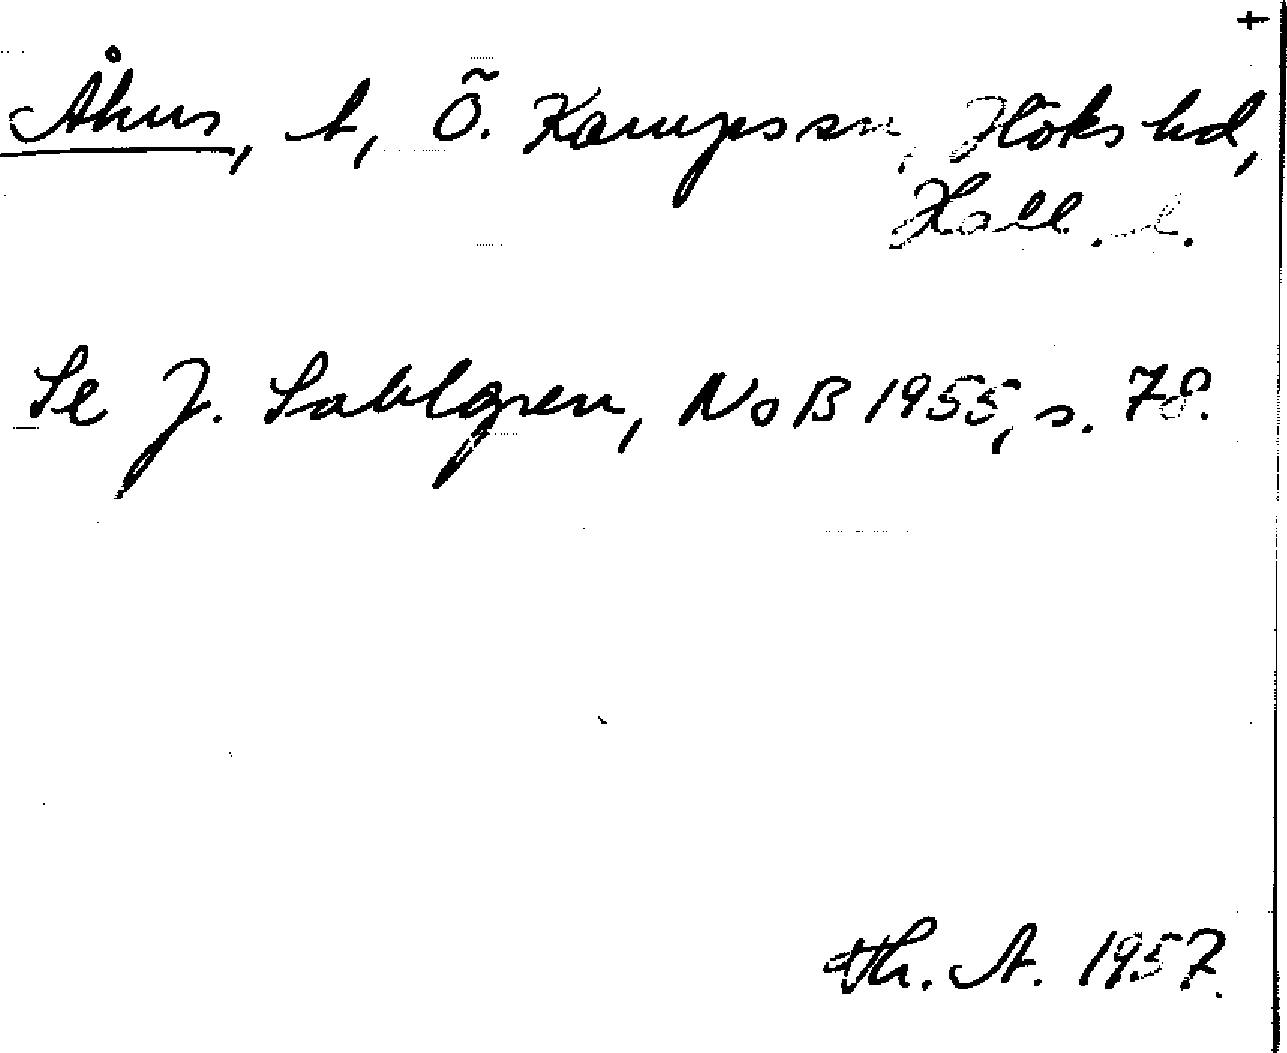 +
Åhus, t, Ö. Karups sn, Höks hd,
Hall. l.
Se J. Sahlgren, NoB 1955, s. 78.
Th. A. 1957.